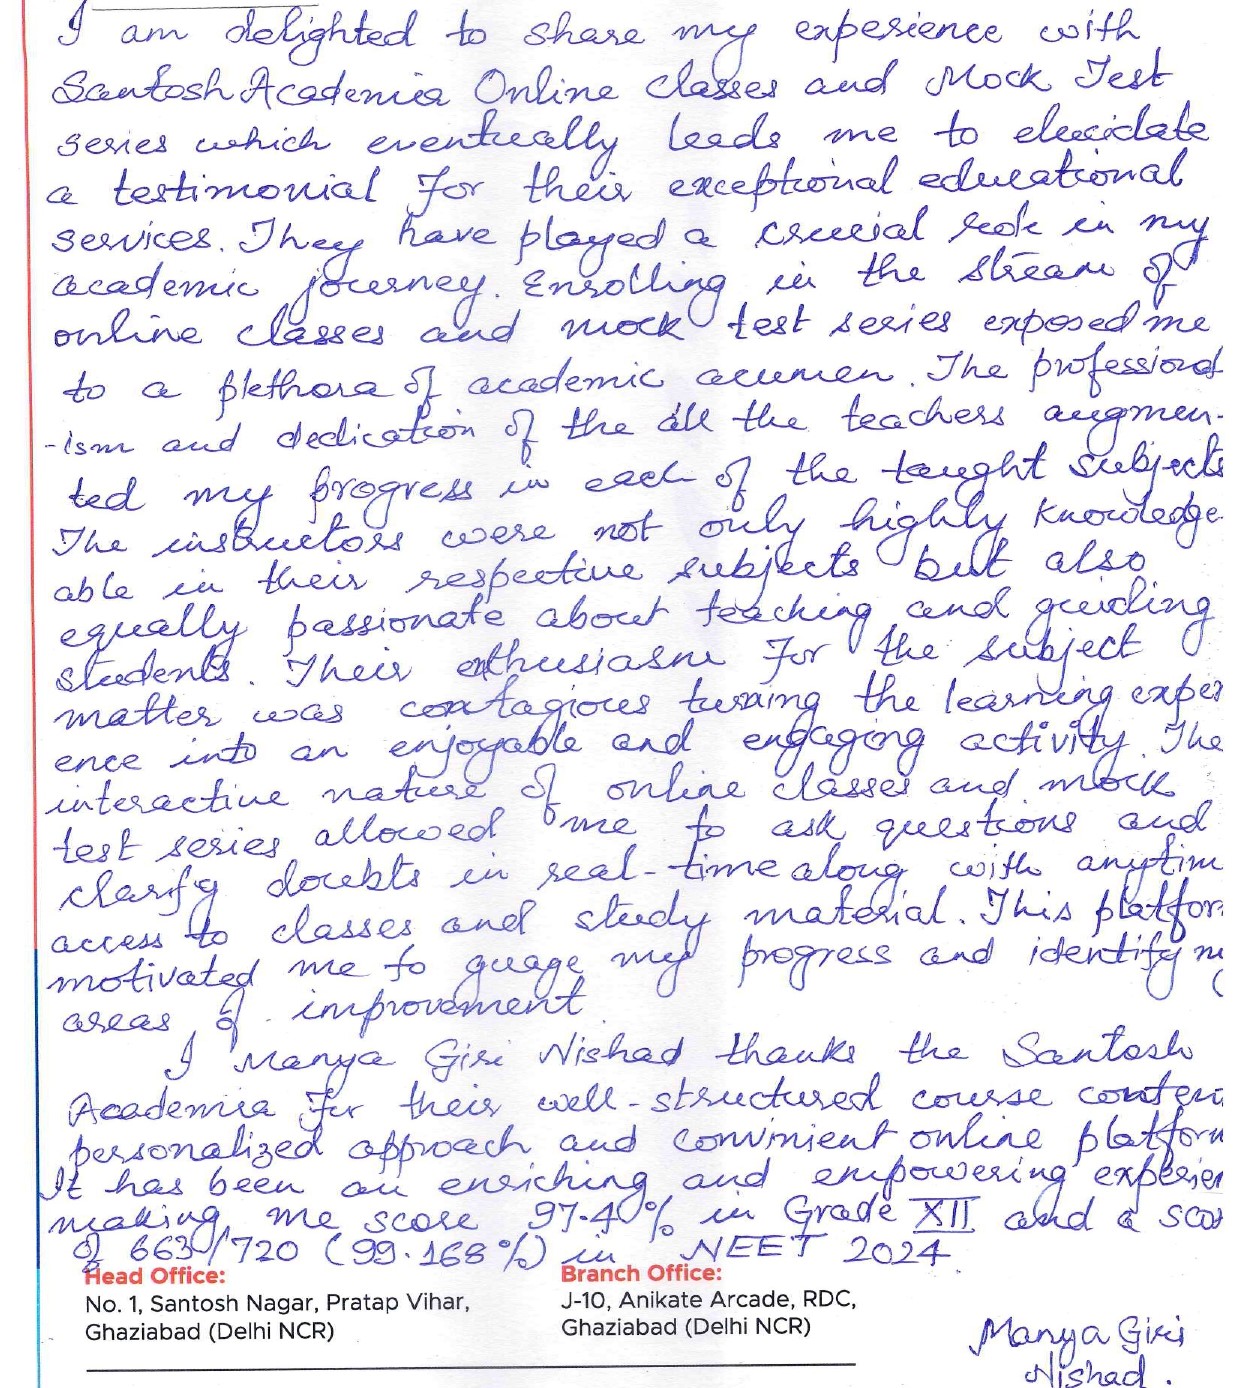 I am delighted to share my experience with
Santosh Academia Online Classes and Mock Test
series which eventually leads me to elucidate
a testimonial for their exceptional educational
services. They have played a crucial role in my
academic journey. Enrolling in the stream of
online classes and mock test series exposed me
to a plethora of academic acumen. The professional
-ism and dedication of the all the teachers augmen-
ted my progress in each of the taught subjects
The instructors were not only highly knowledge
able in their respective subjects but also
equally passionate about teaching and guiding
students. Their enthusiasm for the subject
matter was contagious turning the learning exper
ence into an enjoyable and engaging activity. The
interactive nature of online classes and mock
test series allowed me to ask questions and
clarify doubts in real-time along with anytim
access to classes and study material. This platfor
motivated me to guage my progress and identify m
areas of improvement
I Manya Giri Nishad thanks the Santosh
Academia for their well-structured course conten
personalized approach and convinient online platform
It has been an enriching and empowering experien
making me score 97.40% in Grade XII and a scor
of 663/720 (99.168%) in NEET 2024.
Head Office: Branch Office:
No. 1, Santosh Nagar, Pratap Vihar, J-10, Anikate Arcade, RDC,
Ghaziabad (Delhi NCR) Ghaziabad (Delhi NCR)
Manya Giri
Nishad.